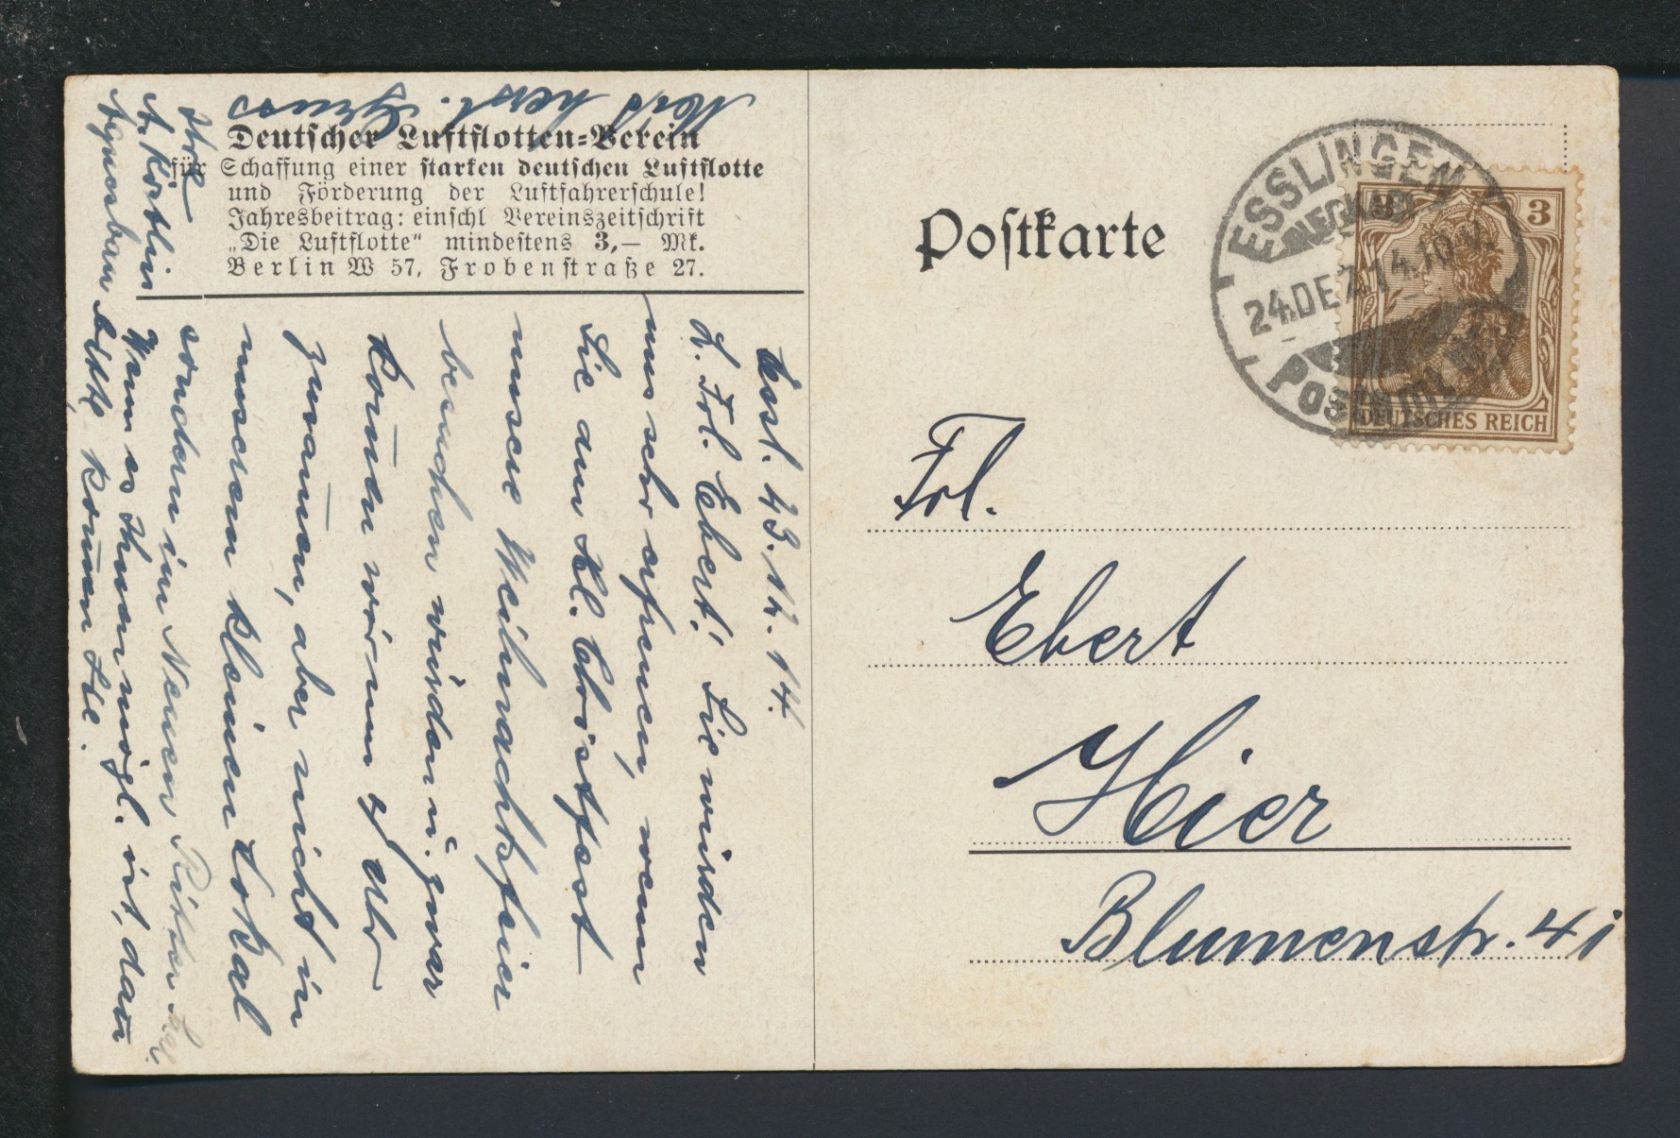 Deutscher Luftflotten-Verein
für Schaffung einer starken deutschen Luftflotte
und Förderung der Luftfahrerschule!
Jahresbeitrag: einschl Vereinszeitschrift
„Die Luftflotte" mindestens 3,— Mk.
Berlin W 57, Frobenstraße 27.
Essl. 23. 12. 14.
L. Frl. Ebert! Sie würden
uns sehr erfreuen, wenn
Sie am Hl. Christfest
unsere Weihnachtsfeier
besuchen würden u. zwar
kom̄en wir um 5 Uhr
zusam̄en, aber nicht in
unserem kleinen Lokal
sondern im Neuen
Wenn es Ihnen mögl. ist, dann
bitte kom̄en Sie.
Mit herzl. Gruss
Ihre
Postkarte
ESSLINGEN
(NECKAR)
24.DEZ.14. 10 V.
3
DEUTSCHES REICH
Frl.
Ebert
Hier
Blumenstr. 41